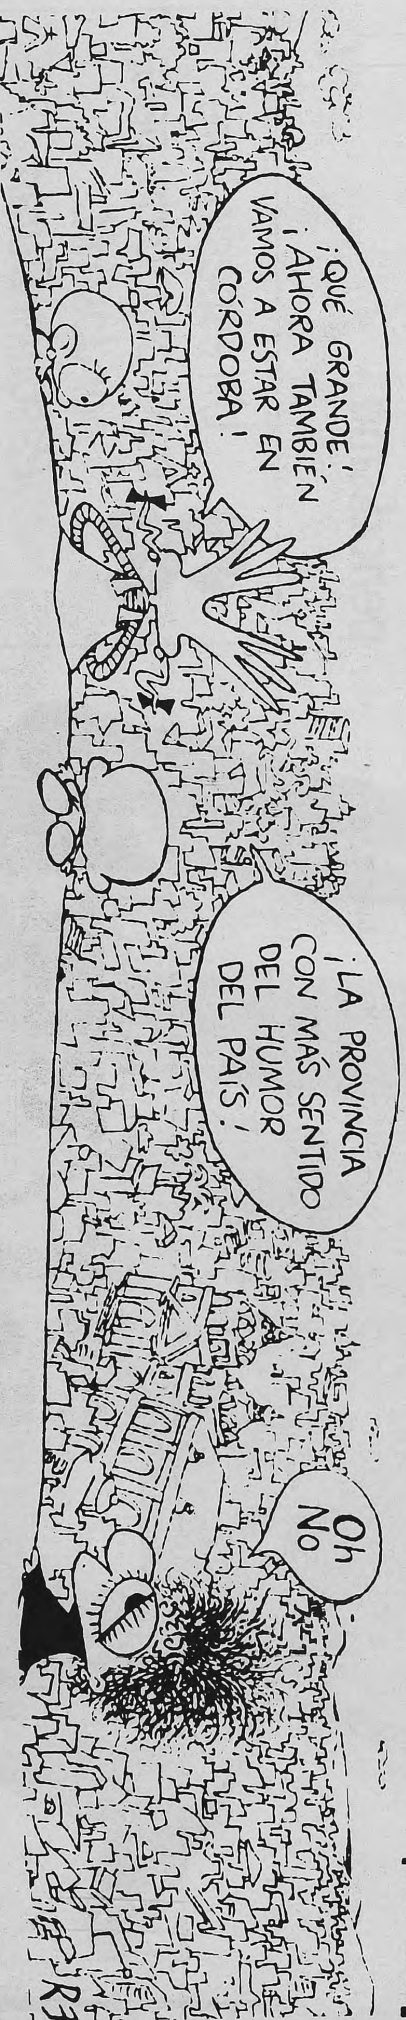 ¡QUÉ GRANDE!
¡AHORA TAMBIÉN
VAMOS A ESTAR EN
CÓRDOBA!
¡LA PROVINCIA
CON MÁS SENTIDO
DEL HUMOR
DEL PAÍS!
Oh
No